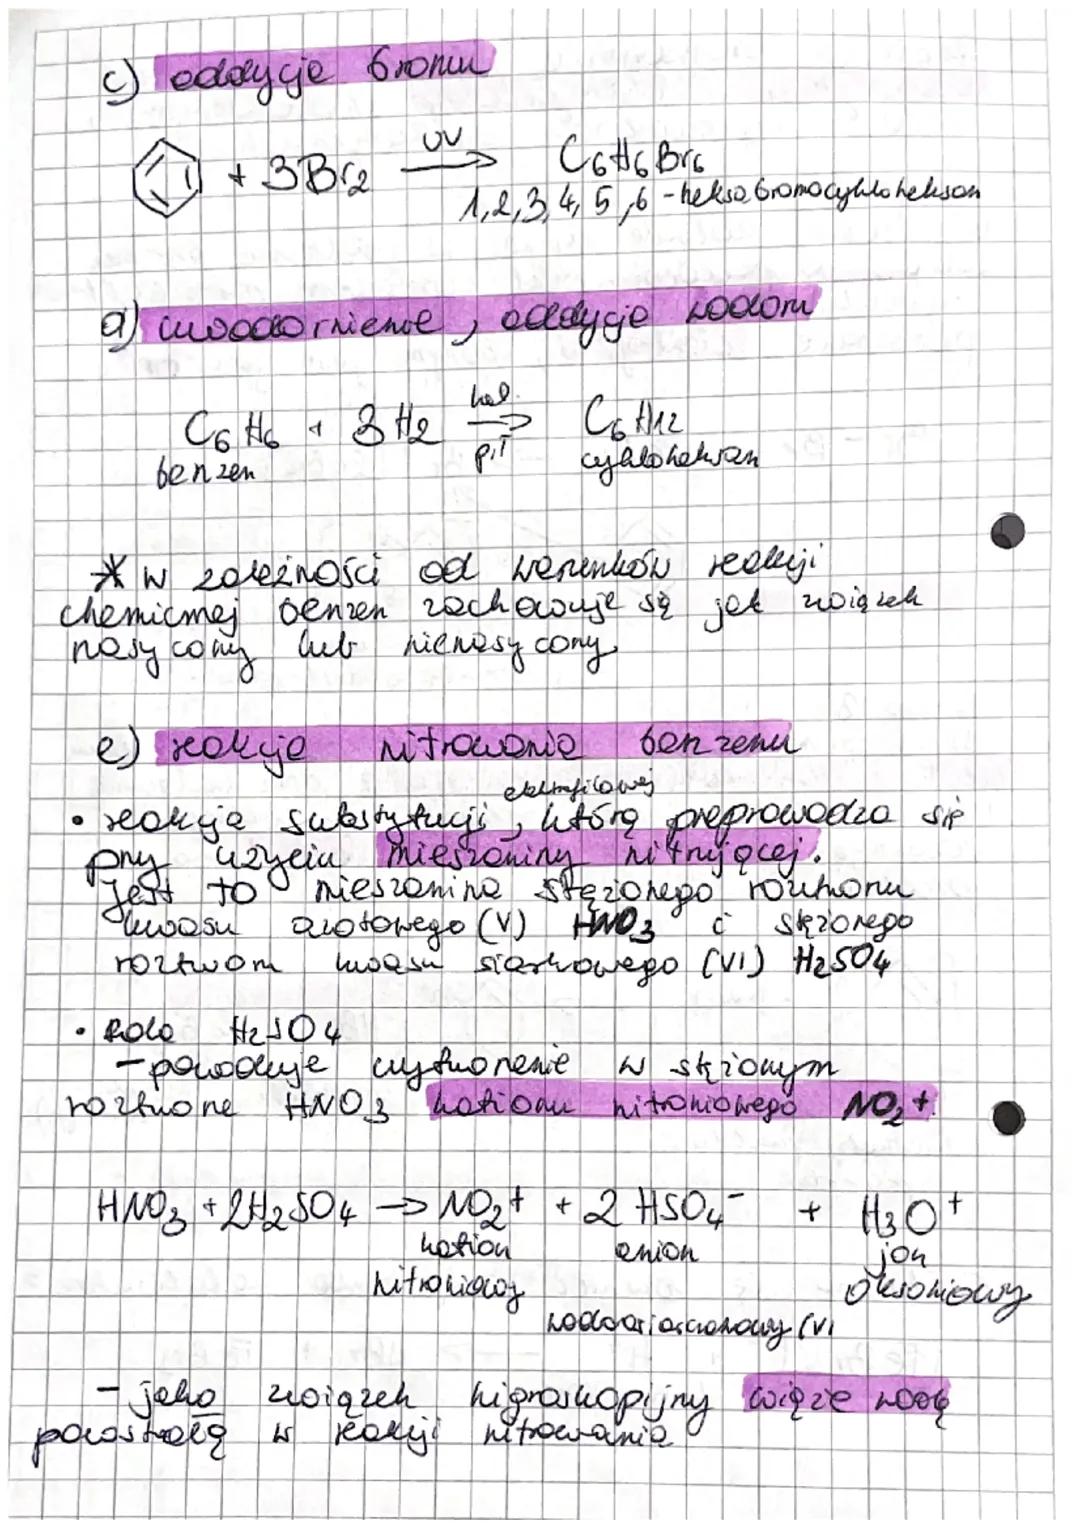 c) addycja bromu
+ 3Br2 UV → C6H6Br6
1,2,3,4,5,6 - heksabromocykloheksan
d) uwodornienie, addycja wodoru
C6H6 + 3H2 kat. p,T → C6H12
benzen cykloheksan
* W zależności od warunków reakcji
chemicznej benzen zachowuje się jak związek
nasycony lub nienasycony.
e) reakcja nitrowania benzenu
elektrofilowej
• reakcja substytucji, którą przeprowadza się
przy użyciu mieszaniny nitrującej.
Jest to mieszanina stężonego roztworu
kwasu azotowego (V) HNO3 i stężonego
roztworu kwasu siarkowego (VI) H2SO4
• Rola H2SO4
- powoduje wytworzenie w stężonym
roztworze HNO3 kationu nitroniowego NO2+.
HNO3 + 2H2SO4 → NO2+ + 2HSO4- + H3O+
kation anion jon
nitroniowy oksoniowy
wodorosiarczanowy (VI
- jako związek higroskopijny wiąże wodę
powstałą w reakcji nitrowania